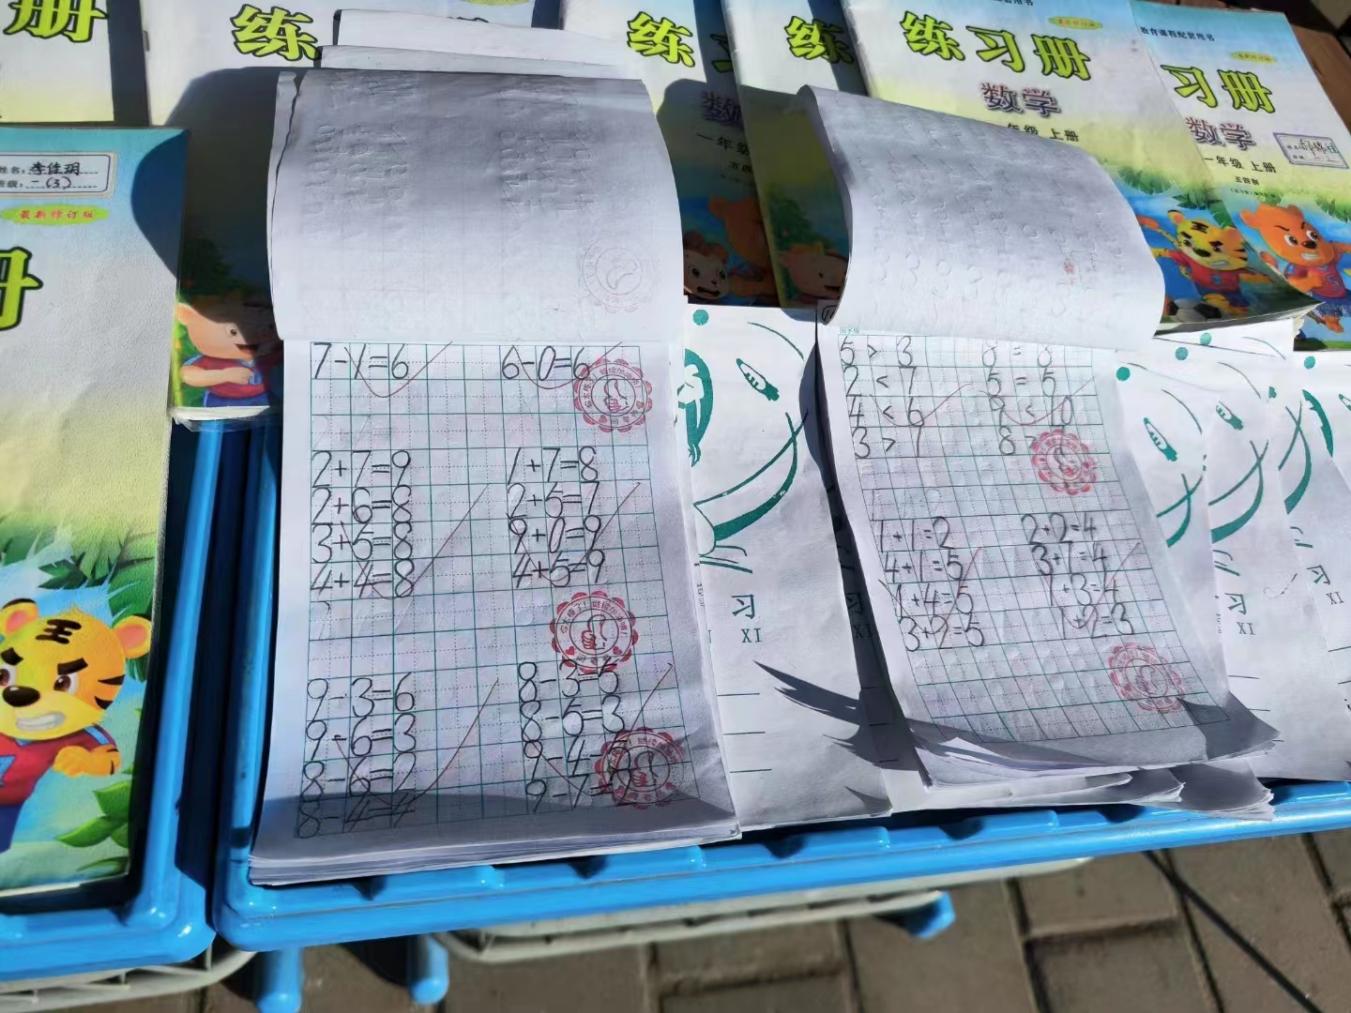 册
练
练习
练
练习册
数学
年级 上册
习册
数学
一年级 上册
五四制
姓名：李佳玥
班级：一(3)
最新修订版
册
数
一年级
五四
7-1=6 6-0=6
2+7=9 1+7=8
2+6=8 2+5=7
3+5=8 9+0=9
4+4=8 4+5=9
9-3=6 8-3=5
9-6=3 8-5=3
8-6=2 9-4
8-4=4 9-7=
5>3 8=8
2<7 5=5
4<6 9<10
3>1 8>
1+1=2 2+2=4
4+1=5 3+1=4
1+4=5 1+3=4
3+2=5 1+2=3
习
XI
习
XI
习
XI